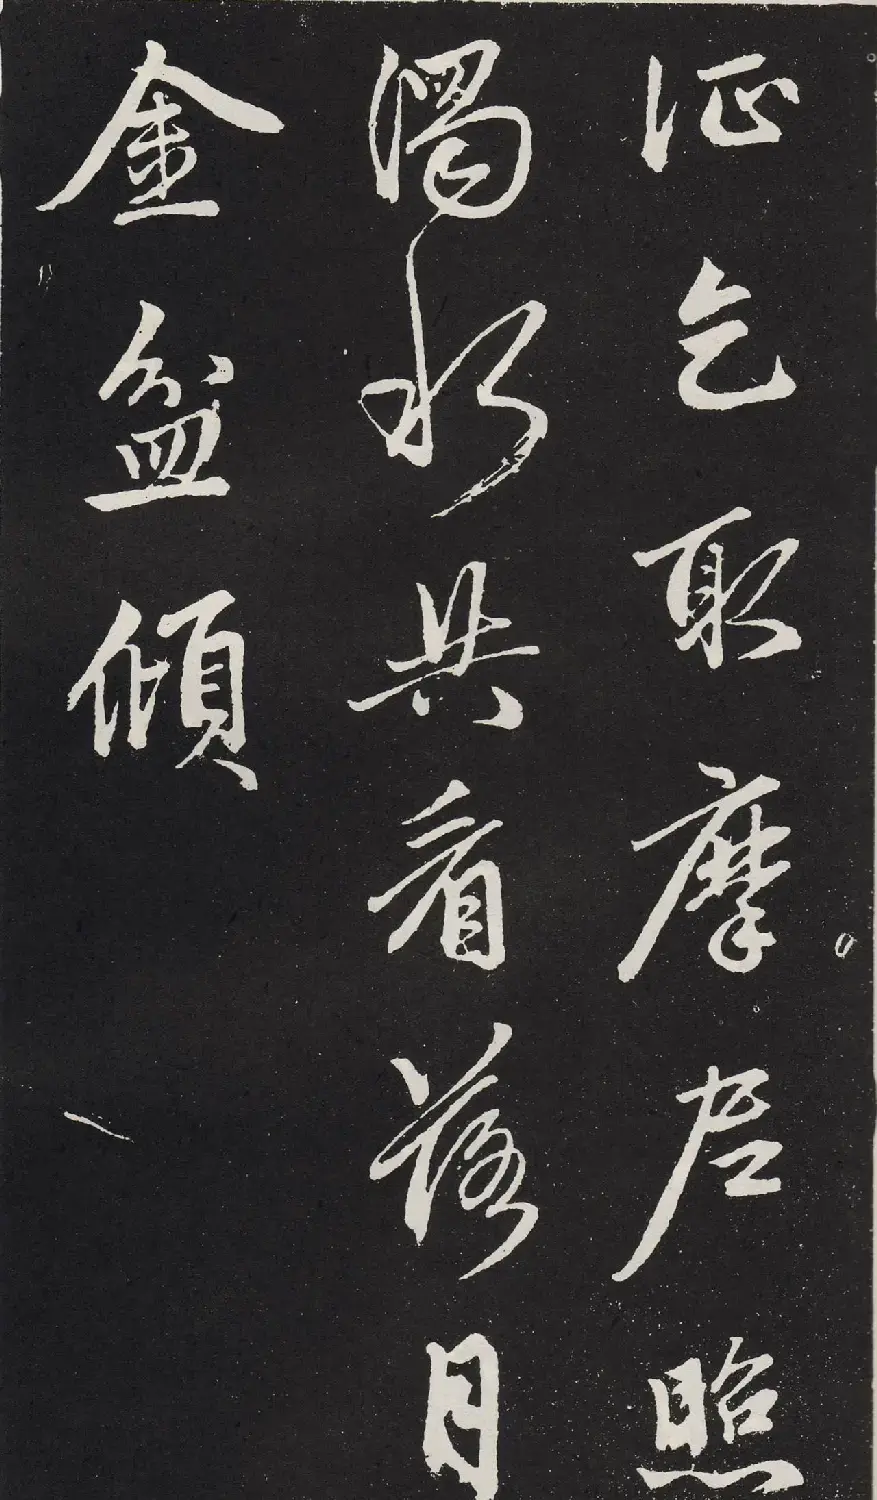 証乞取摩尼照
濁水共看落月
金盆傾